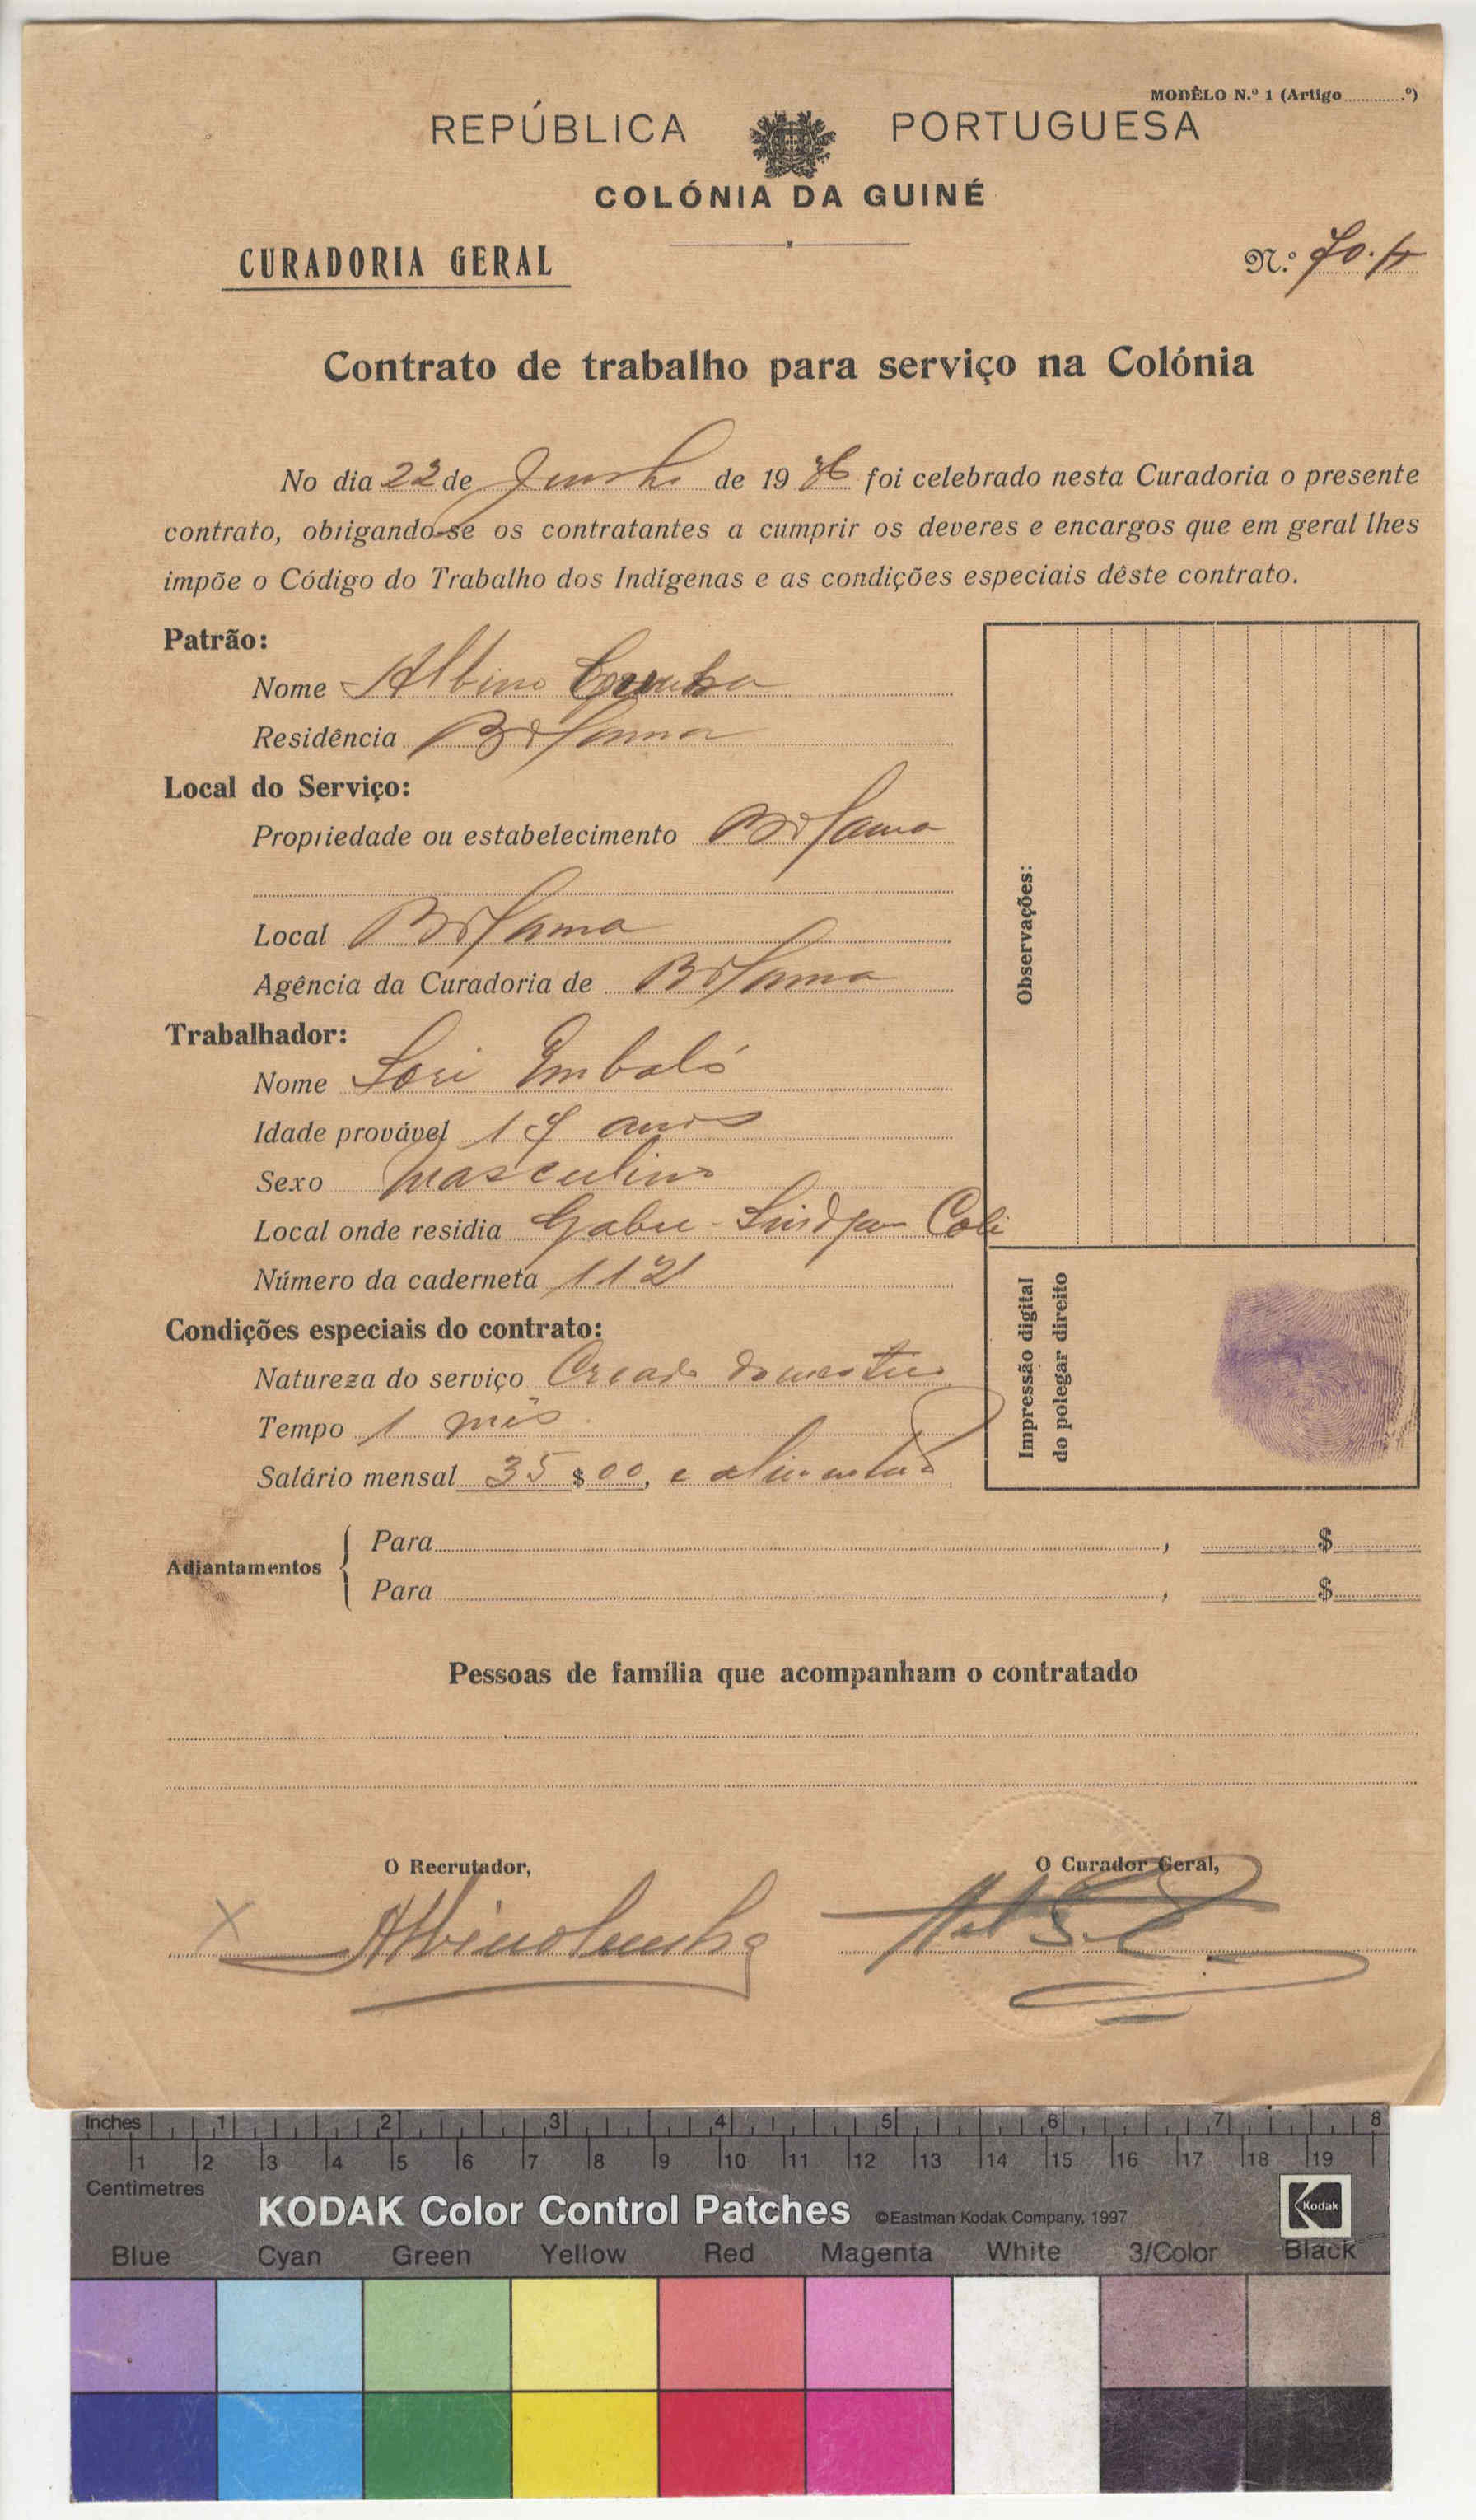 MODÊLO N.º 1 (Artigo ............º)
REPÚBLICA PORTUGUESA
COLÓNIA DA GUINÉ
CURADORIA GERAL
N.º 70.
Contrato de trabalho para serviço na Colónia
No dia 22 de Junho de 1936 foi celebrado nesta Curadoria o presente
contrato, obrigando-se os contratantes a cumprir os deveres e encargos que em geral lhes
impõe o Código do Trabalho dos Indígenas e as condições especiais dêste contrato.
Patrão:
Nome Albino Cunha
Residência Bolama
Local do Serviço:
Propriedade ou estabelecimento Bolama
Local Bolama
Agência da Curadoria de Bolama
Trabalhador:
Nome Sori Embaló
Idade provável 17 anos
Sexo masculino
Local onde residia Gabu - Coli
Número da caderneta 112
Condições especiais do contrato:
Natureza do serviço Creado domestico
Tempo 1 mês
Salário mensal 35$00, e alimentação
Observações:
Impressão digital
do polegar direito
Adiantamentos
Para ........, ........$........
Para ........, ........$........
Pessoas de família que acompanham o contratado
O Recrutador,
O Curador Geral,
X Albino Cunha
Inches 1 2 3 4 5 6 7 8
1 2 3 4 5 6 7 8 9 10 11 12 13 14 15 16 17 18 19
Centimetres
KODAK Color Control Patches ©Eastman Kodak Company, 1997 Kodak
Blue Cyan Green Yellow Red Magenta White 3/Color Black